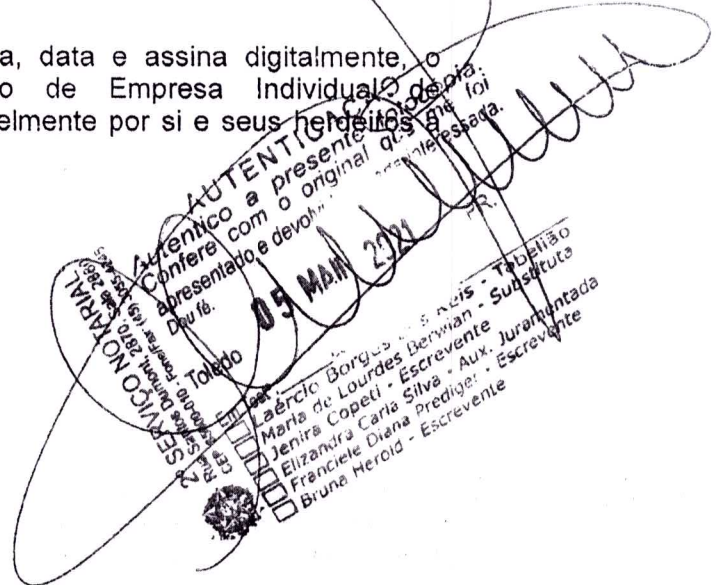 a, data e assina digitalmente, o
o de Empresa Individual de
elmente por si e seus herdeiros a
AUTENTICAÇÃO
Autentico a presente fotocópia.
Confere com o original que me foi
apresentado e devolvi interessada.
Dou fé.
05 MAIO 2021
Toledo PR.
2º SERVIÇO NOTARIAL
Rua Santos Dumont, 2870, Sala
CEP - Fone/Fax (45)
Laércio Borges Reis - Tabelião
Maria de Lourdes Berwian - Substituta
Jenira Copeti - Escrevente
Elizandra Carla Silva - Aux. Juramentada
Franciele Diana Prediger - Escrevente
Bruna Herold - Escrevente